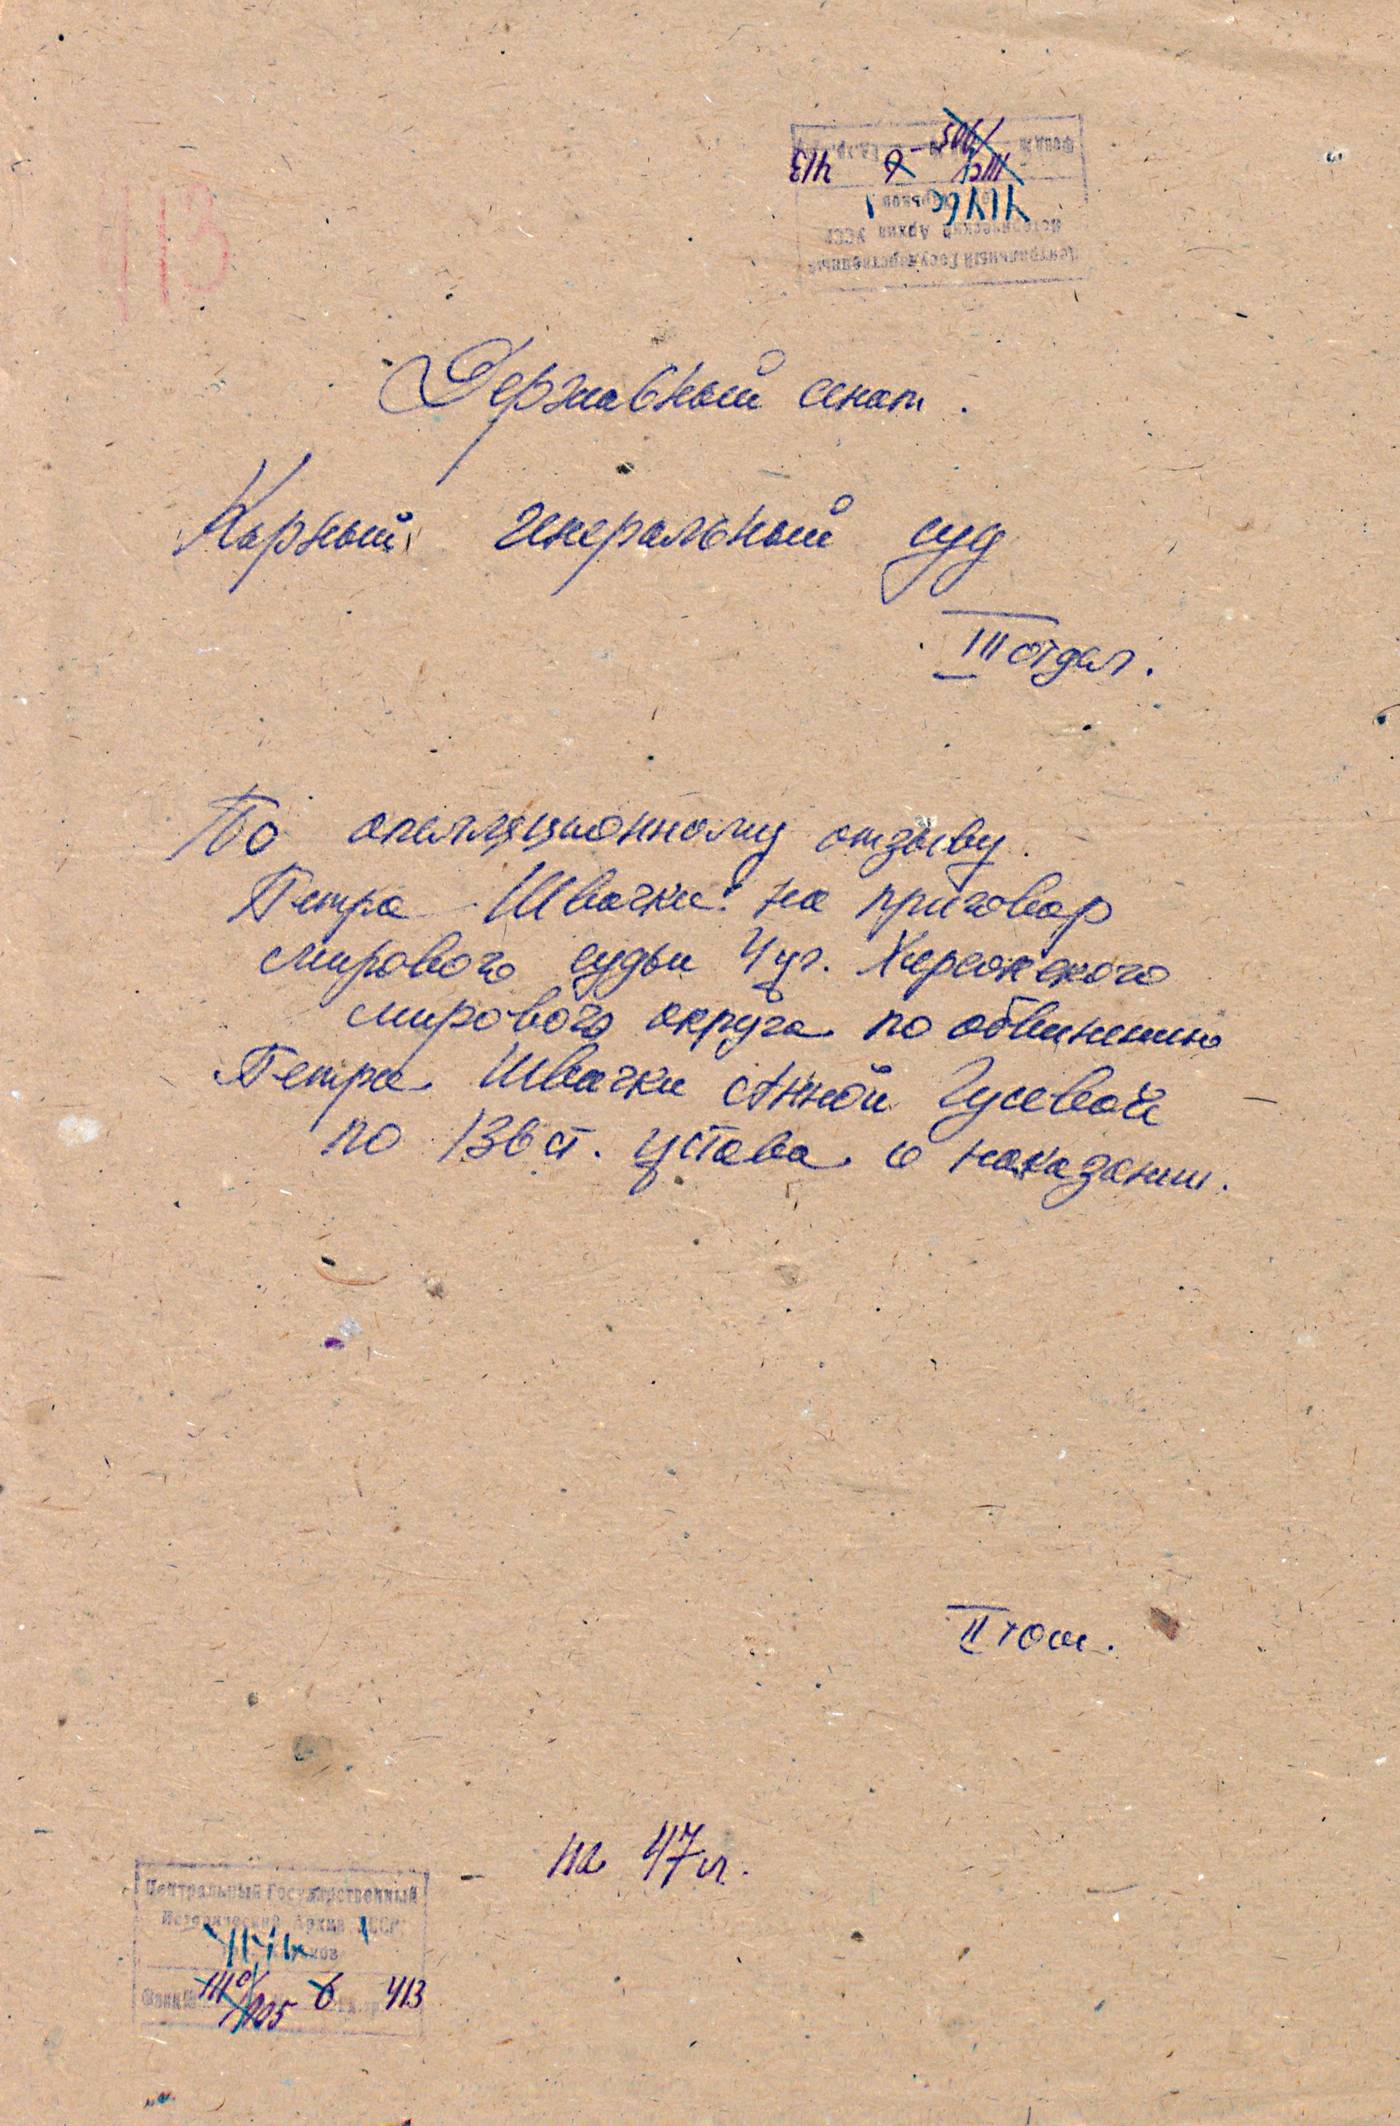 413
Центральный Государственный
Исторический Архив УССР
Фонд №
413
Державный сенат.
Карный генеральный суд
III отдел.
По апелляционному отзыву
Петра Швачки на приговор
мирового судьи 4 уг. Херсонского
мирового округа по обвинению
Петра Швачки Анной Гусевой
по 136 ст. устава о наказании.
на 47 л.
Центральный Государственный
Исторический Архив УССР
Фонд №
413